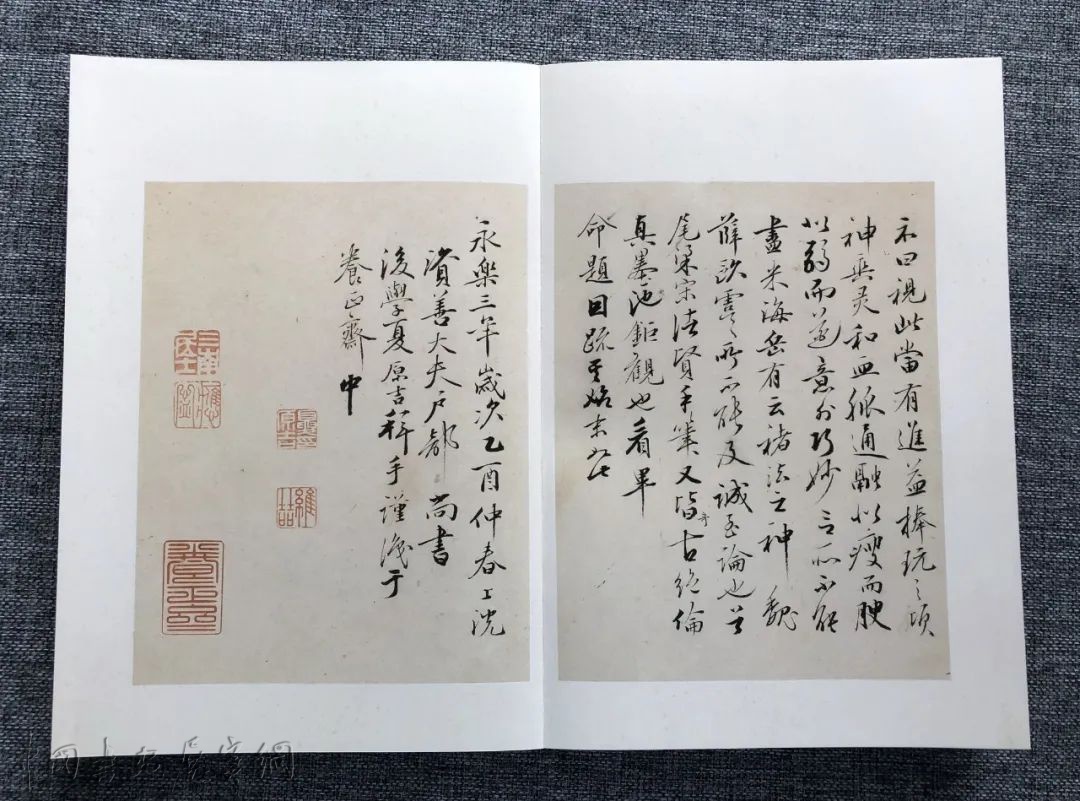 示曰視此當有進益捧玩之頃
神與灵和血脈通融似瘦而腴
似弱而遒意外巧妙言所不能
盡米海岳有云褚法之神魏
薛歐虞所不能及誠至論也首
尾梁宋法賢手筆又皆奇古絕倫
真墨池鉅觀也看畢
命題因疏其始末如此
永樂三年歲次乙酉仲春上浣
資善大夫戶部尚書
後學夏原吉稽手謹識于
養正齋中
維喆